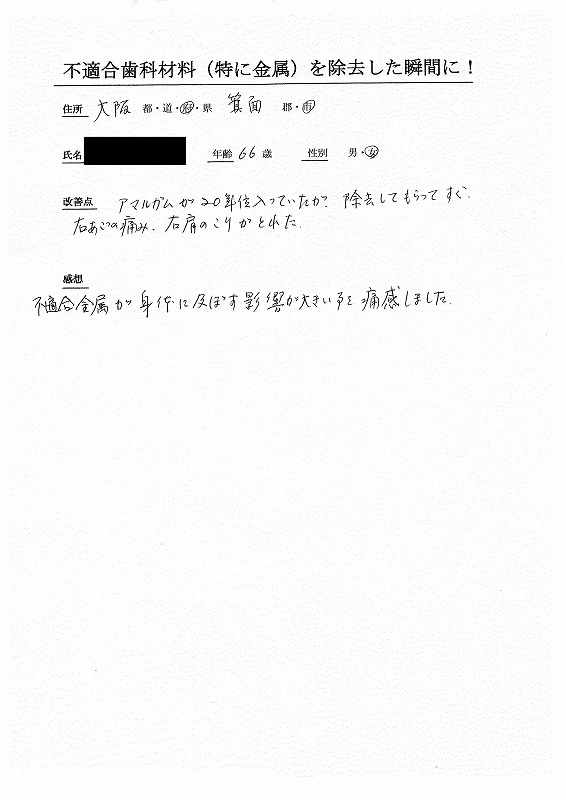 不適合歯科材料（特に金属）を除去した瞬間に！
住所 大阪 都・道・府・県 箕面 郡・市
氏名 年齢 66 歳 性別 男・女
改善点 アマルガムが20年位入っていたが、除去してもらってすぐ、
右あごの痛み、右肩のこりがとれた。
感想
不適合金属が身体に及ぼす影響が大きい事を痛感しました。